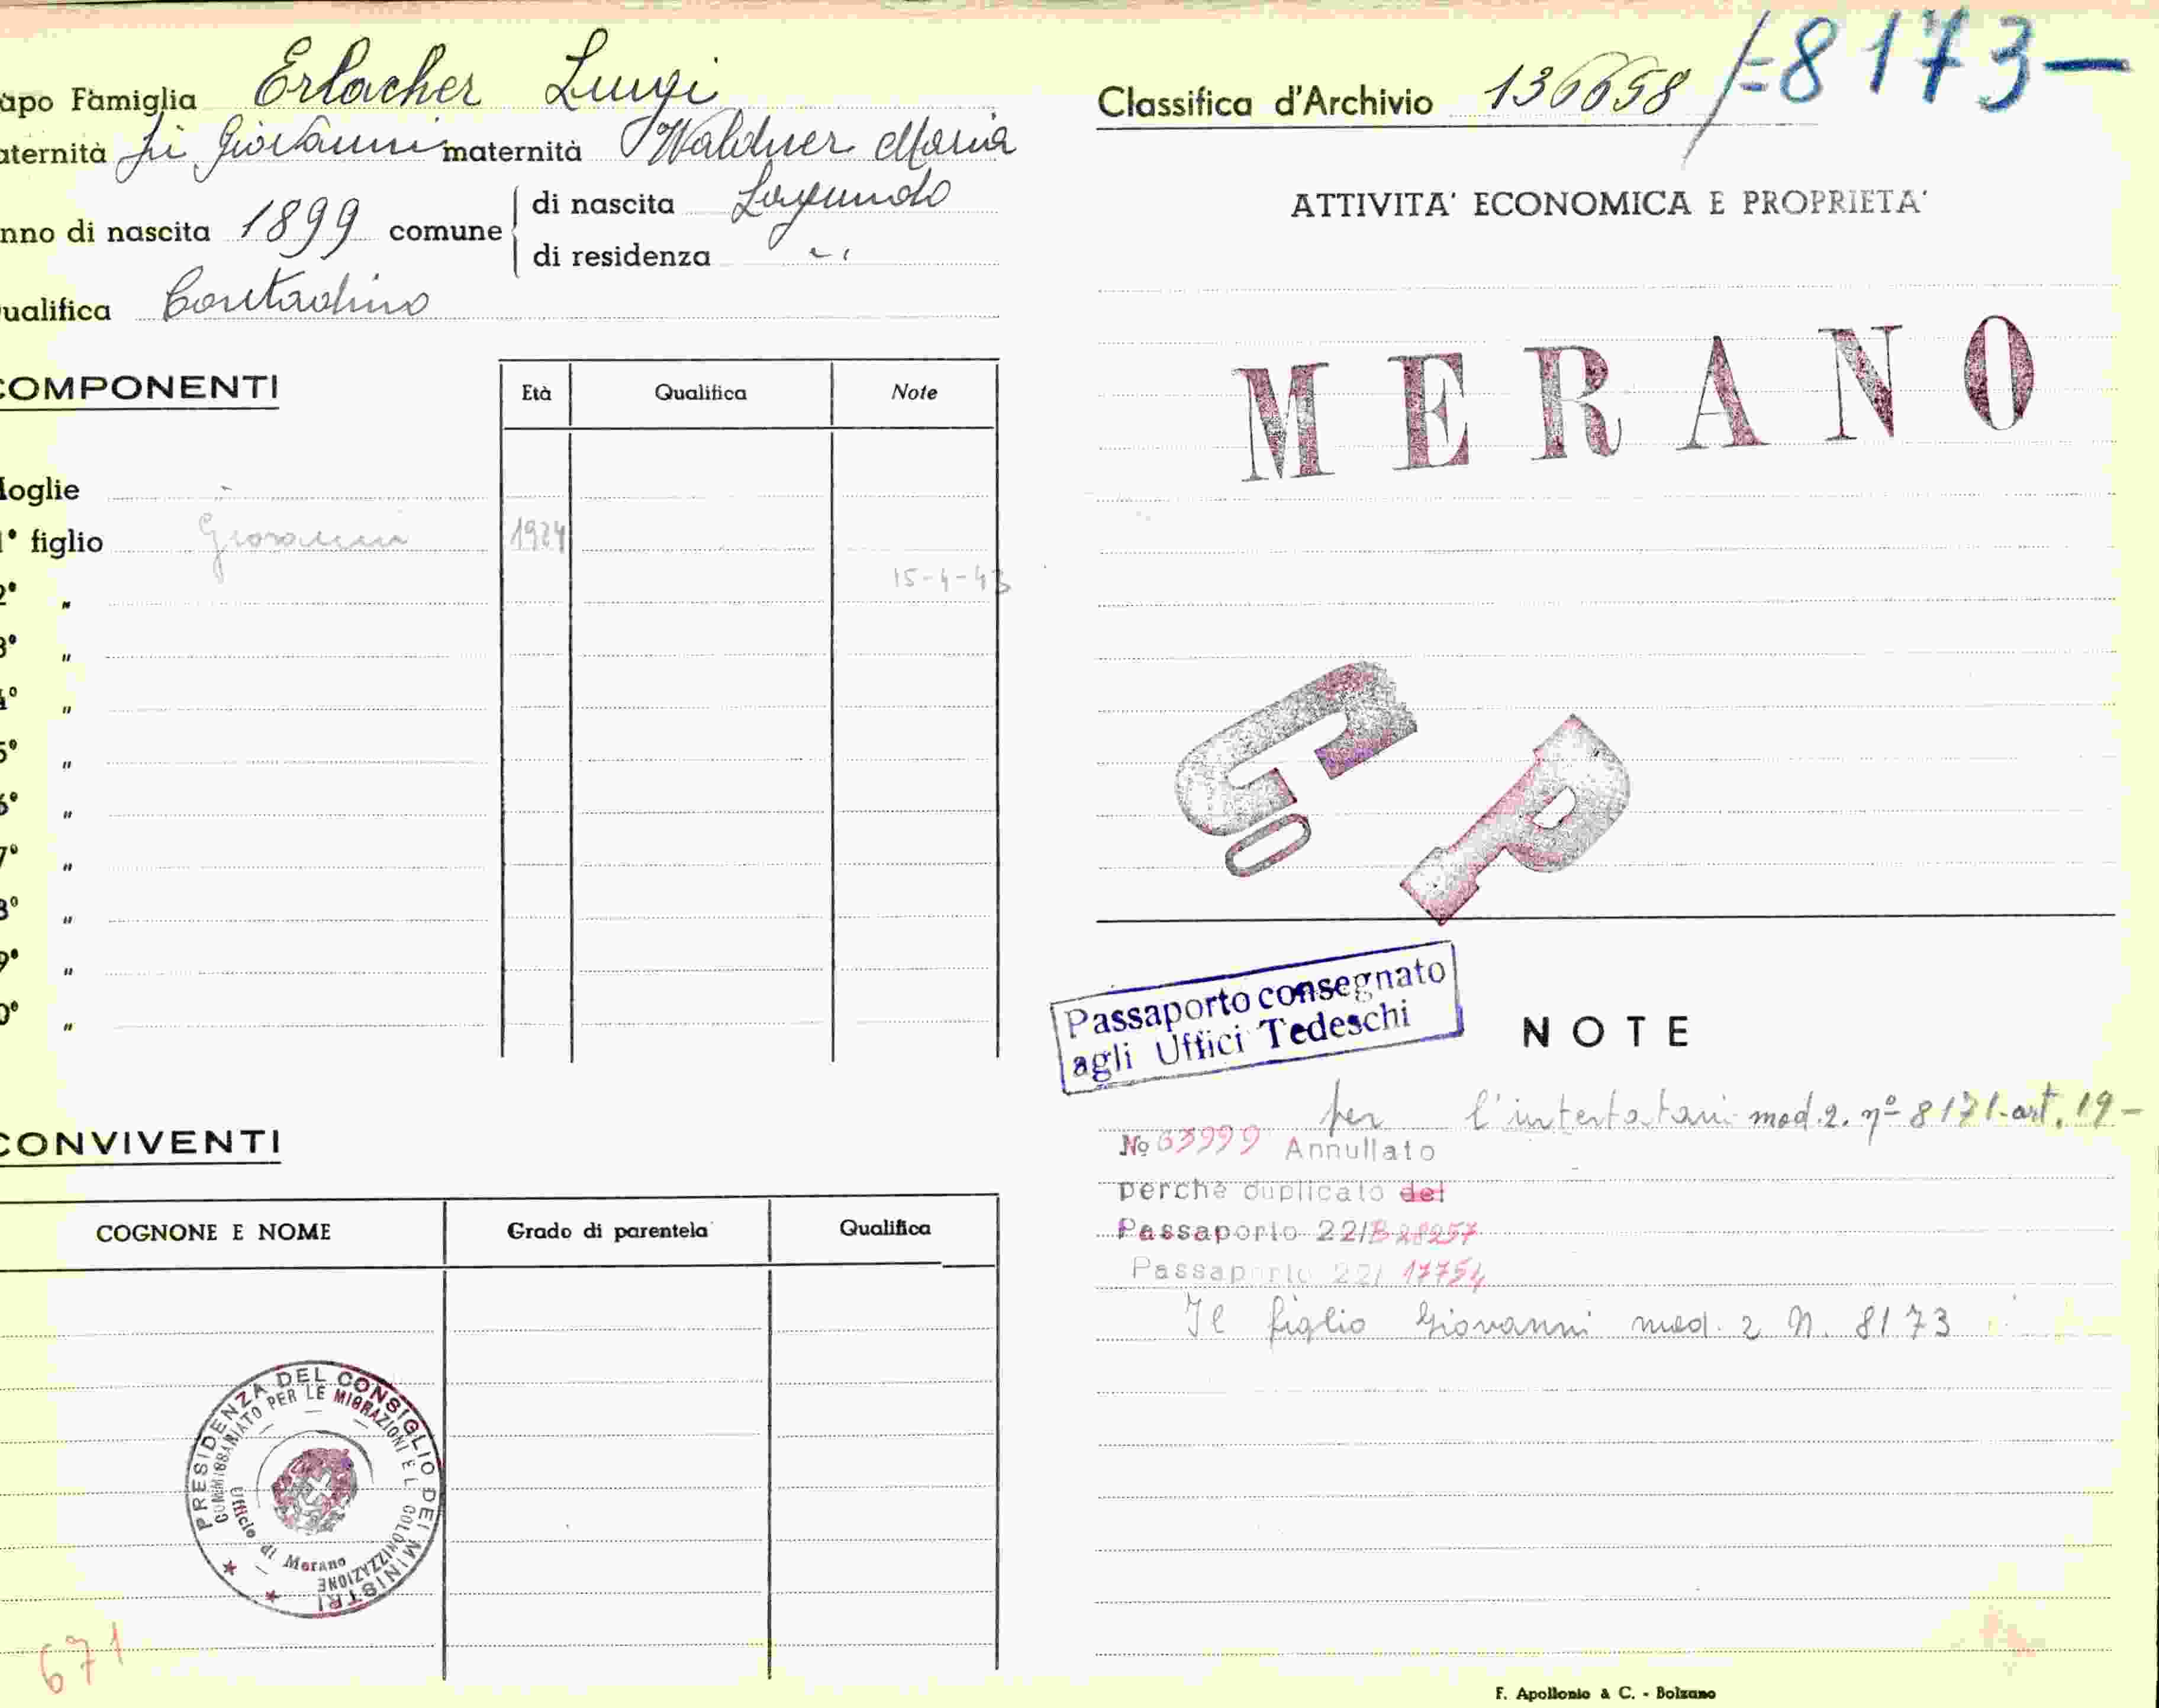 apo Famiglia Erlacher Luigi
aternità fu Giovanni maternità Waldner Maria
nno di nascita 1899 comune di nascita Lagundo
di residenza
ualifica Contadino
COMPONENTI
Età Qualifica Note
oglie
1° figlio Giovanni 1924
15-4-43
2° "
3° "
4° "
5° "
6° "
7° "
8° "
9° "
0° "
CONVIVENTI
COGNONE E NOME Grado di parentela Qualifica
PRESIDENZA DEL CONSIGLIO DEI MINISTRI
COMMISSARIATO PER LE MIGRAZIONI E L COLONIZZAZIONE
Ufficio di Merano
671
Classifica d'Archivio 136658 /=8173—
ATTIVITA' ECONOMICA E PROPRIETA'
MERANO
P
Passaporto consegnato
agli Uffici Tedeschi
NOTE
per l'intestatari mod.2. nº 8171-art. 19-
No 63999 Annullato
perchè duplicato del
Passaporto 22/B 28257
Passaporto 22/ 17754
Il figlio Giovanni mod. 2 N. 8173
F. Apollonio & C. - Bolzano